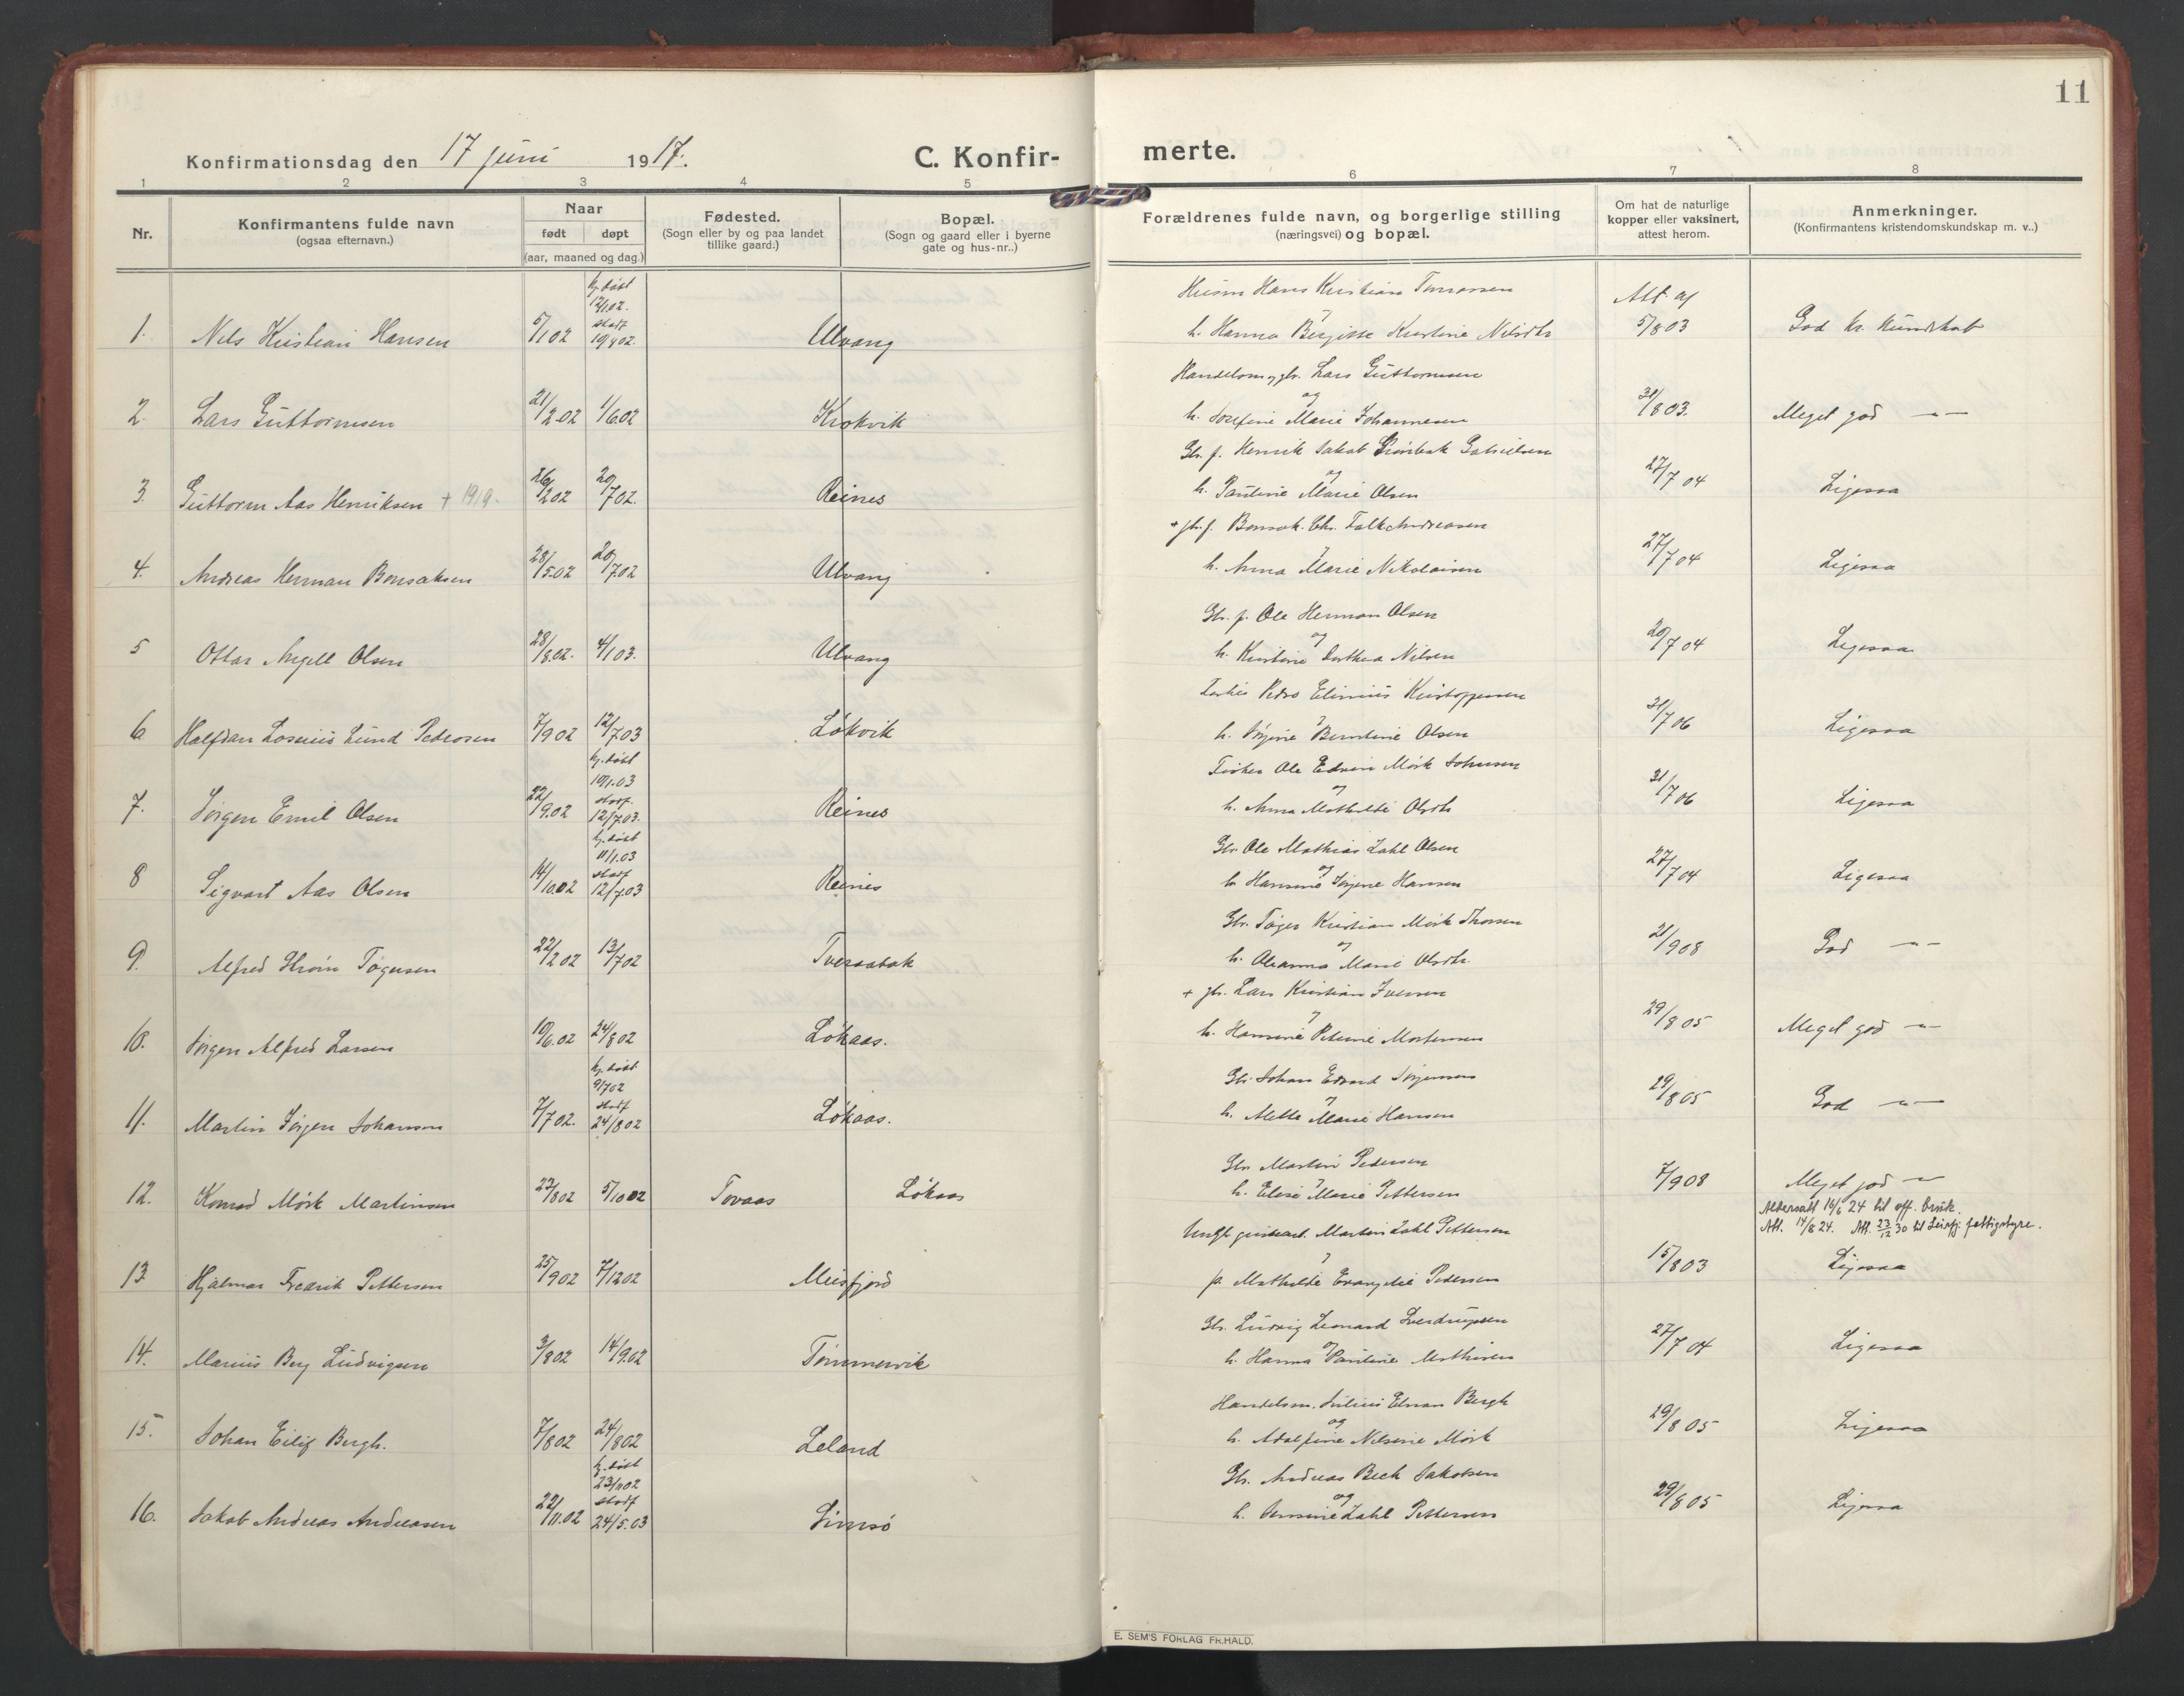 11
Konfirmationsdag den 17 juni 1917.
C. Konfir-
merte.
1 2 3 4 5 6 7 8
Nr.
Konfirmantens fulde navn
(ogsaa efternavn.)
Naar
født døpt
(aar, maaned og dag.)
Fødested.
(Sogn eller by og paa landet
tillike gaard.)
Bopæl.
(Sogn og gaard eller i byerne
gate og hus-nr..)
Forældrenes fulde navn, og borgerlige stilling
(næringsvei) og bopæl.
Om hat de naturlige
kopper eller vaksinert,
attest herom.
Anmerkninger.
(Konfirmantens kristendomskundskap m. v..)
hj. døbt
12/1 02.
stadf
1. Nils Kristian Hansen 5/1 02 10/8 02. Ulvang
Hans Kristian
h. Hanna Bergitte Kristine Nilsdtr
Att. af
5/8 03
God kr. kundskab
2. Lars Guttormsen 21/2 02 1/6 02 Krokvik
Lars Guttormsen
og
h. Josefine Marie Johannesen
31/8 03.
Meget god — —
3. Guttorm Aas Henriksen + 1919. 26/2 02 20/7 02. Reines
Gbr. f. Henrik Jakob Grønbæk Gabrielsen
og
h. Pauline Marie Olsen
27/7 04
Ligesaa
4. Andreas Herman Bonsaksen 28/5 02 20/7 02 Ulvang
+ gbr. f. Bonsak Chr. Falk Andreasen
h. Anna Marie Nikolaisen
27/7 04
Ligesaa
5 Ottar Angell Olsen 28/8 02. 4/1 03. Ulvang
Gbr. f. Ole Herman Olsen
og
h. Kristine Dorthea Nilsen
20/7 04
Ligesaa
6 Halfdan Losius Lund Pedersen 7/9 02 12/7 03 Løkvik
Pedro Kristoffersen
h. Jørgine Berntine Olsen
31/7 06
Ligesaa
hj. døbt
10/1 03
stadf.
7. Jørgen Emil Olsen 22/9 02 12/7 03. Reines
Fisker Ole Edvin Mørk Johnsen
og
h. Anna Mathilde Olsdtr
31/7 06
Ligesaa
hj. døbt
11/1 03
stadf
8 Sigvart Aas Olsen 14/10 02 12/7 03 Reines
Gbr. Ole Mathias Zahl Olsen
og
h. Hansine Jørgine Hansen
27/7 04
Ligesaa
9. Alfred Strøm Tøgersen 22/2 02 13/7 02 Tveraabak
Gbr. Tøger Kristian Mørk Thorsen
og
h. Oleanna Marie Olsdtr.
21/9 08
God — —
10. Jørgen Alfred Larsen 10/6 02 24/8 02 Løkaas.
+ gbr. Lars Kristian Iversen
h. Hansine Petrine Mortensen
29/8 05
Meget god —
hj. døbt
9/7 02
stadf
11. Martin Jørgen Johansen 7/7 02. 24/8 02 Løkaas.
Gbr. Johan Edvard Jørgensen
h. Mette Marie Hansen
29/8 05
God — —
12. Konrad Mørk Martinsen 23/8 02 5/10 02 Tovaas Løkaas
Gbr. Martin Pedersen
h. Elise Marie Pettersen
7/9 08
Meget god —
Aldersatt 16/6 24 til off. bruk.
Att. 14/8 24. Att. 23/12 30 til Leirfj. fattigstyre.
13 Hjalmar Fredrik Pettersen 25/9 02 7/12 02 Meisfjord
Ungk. Martin Zahl Pettersen
p. Mathilde Evangelie Pedersen
15/8 03
Ligesaa
14. Marius Berg Ludvigsen 3/8 02 14/9 02 Tømmervik
Gbr. Ludvig Leonard Sverdrupsen
og
h. Hanna Pauline Mathisen
27/7 04
Ligesaa
15. Johan Eilif Bergh. 7/8 02 24/8 02 Leland
Handelsm. Julius Elnan Bergh
og
h. Adolfine Nilsine Mørk
29/8 05
Ligesaa
hj. døbt
23/11 02
stadf
16. Jakob Andreas Andreasen 22/11 02 24/5 03 Simsø
Gbr. Andreas Bech Jakobsen
og
h. Zahl Pettersen
29/8 05
Ligesaa
E. SEM'S FORLAG FR.HALD.